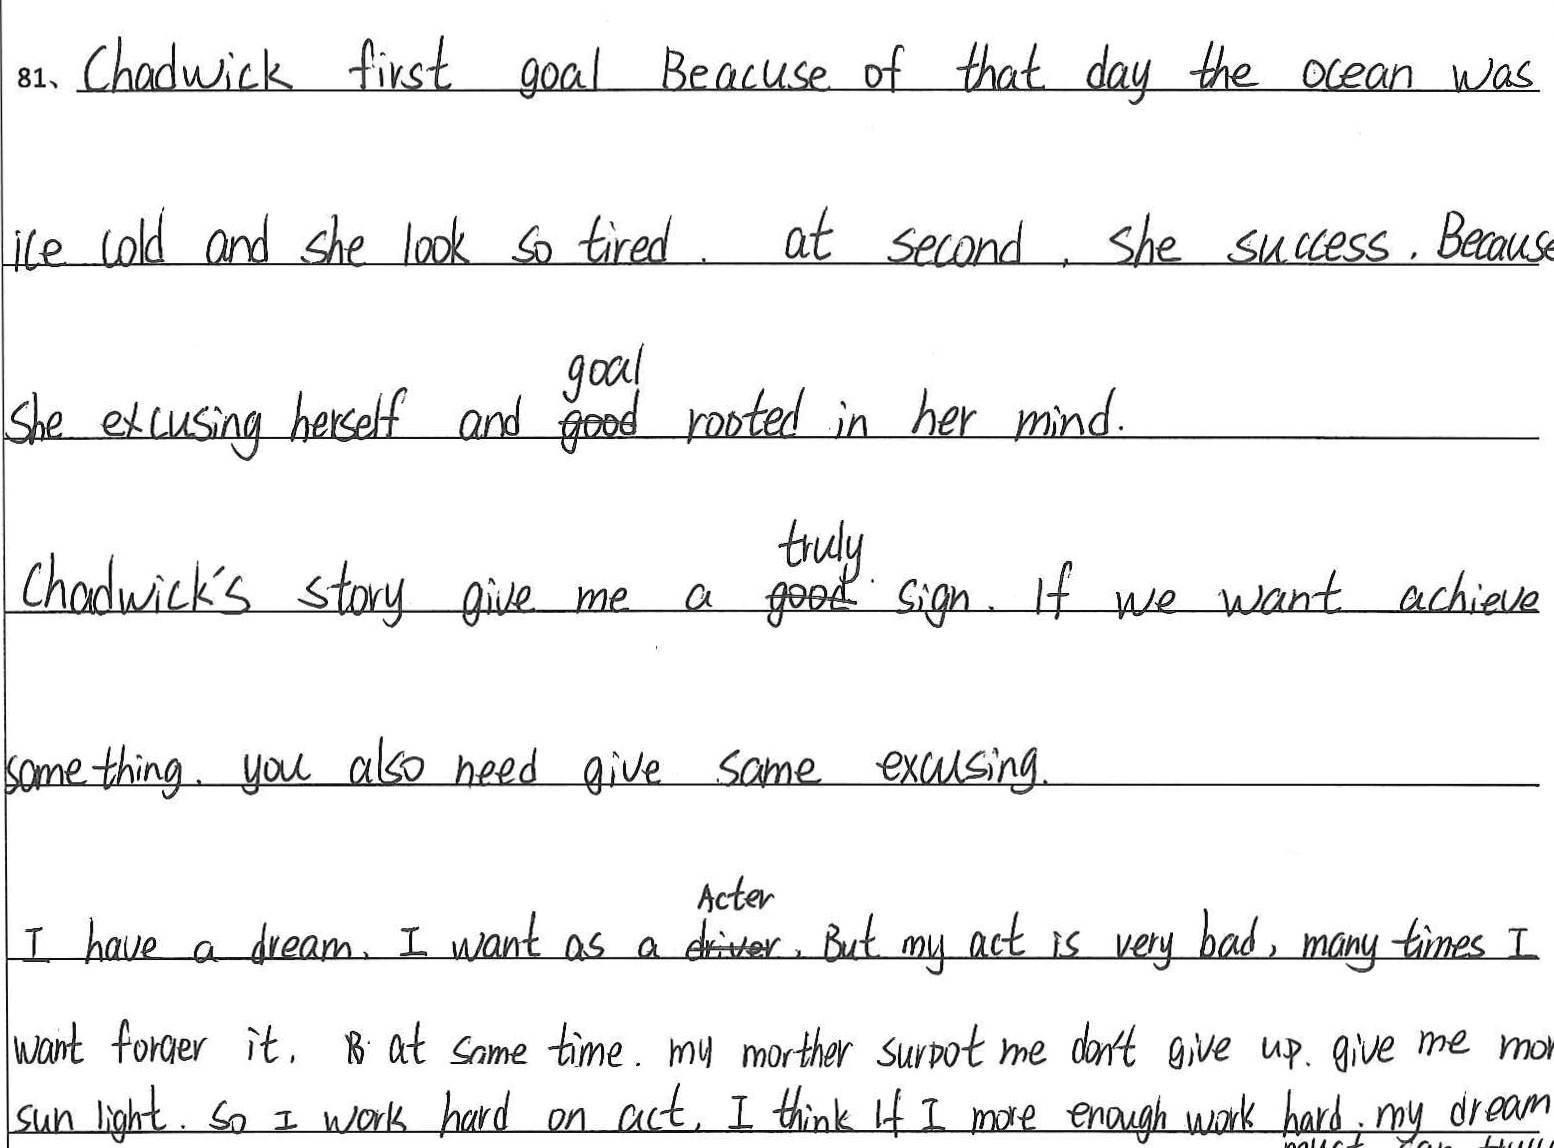 81、Chadwick first goal Beacuse of that day the ocean was
ice cold and she look so tired. at second, she success. Because
goal
She excusing herself and good rooted in her mind.
truly
Chadwick's story give me a good sign. If we want achieve
something. you also need give same excusing.
Acter
I have a dream. I want as a driver. But my act is very bad, many times I
want forger it. B at same time. my morther surpot me don't give up. give me mor
sun light. So I work hard on act. I think If I more enough work hard. my dream
must